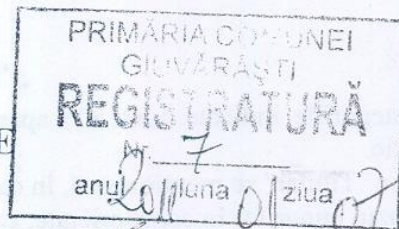 PRIMĂRIA COMUNEI
GIUVĂRĂȘTI
REGISTRATURĂ
Nr. 7
anul 2011 luna 01 ziua 07
E